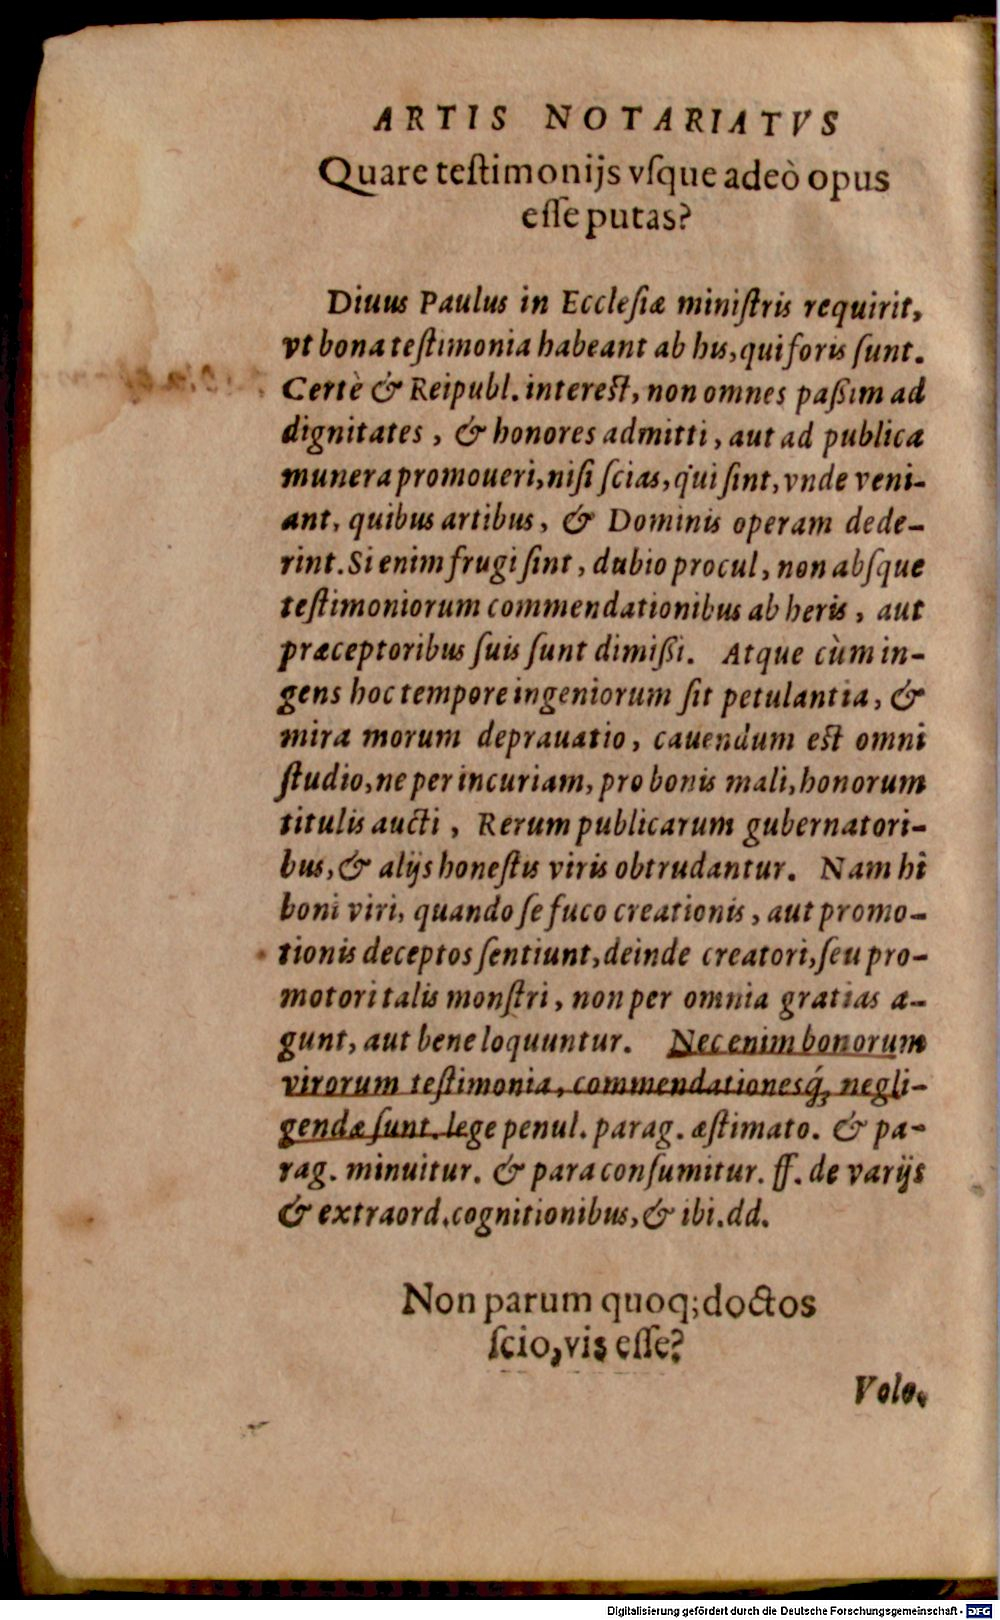 ARTIS NOTARIATVS
Quare teſtimonijs vſque adeò opus
eſſe putas?
Diuus Paulus in Eccleſiæ miniſtris requirit,
vt bona teſtimonia habeant ab his, qui foris ſunt.
Certè & Reipubl. intereſt, non omnes paßim ad
dignitates, & honores admitti, aut ad publica
munera promoueri, niſi ſcias, qui ſint, vnde veni-
ant, quibus artibus, & Dominis operam dede-
rint. Si enim frugi ſint, dubio procul, non abſque
teſtimoniorum commendationibus ab heris, aut
præceptoribus ſuis ſunt dimißi. Atque cùm in-
gens hoc tempore ingeniorum ſit petulantia, &
mira morum deprauatio, cauendum eſt omni
ſtudio, ne per incuriam, pro bonis mali, honorum
titulis aucti, Rerum publicarum gubernatori-
bus, & alijs honeſtis viris obtrudantur. Nam hi
boni viri, quando ſe fuco creationis, aut promo-
tionis deceptos ſentiunt, deinde creatori, ſeu pro-
motori talis monſtri, non per omnia gratias a-
gunt, aut bene loquuntur. Nec enim bonorum
virorum teſtimonia, commendationesq́; negli-
gendæ ſunt. lege penul. parag. æſtimato. & pa-
rag. minuitur. & para conſumitur. ff. de varijs
& extraord. cognitionibus, & ibi. dd.
Non parum quoq; doctos
ſcio, vis eſſe?
Volo.
Digitalisierung gefördert durch die Deutsche Forschungsgemeinschaft - DFG